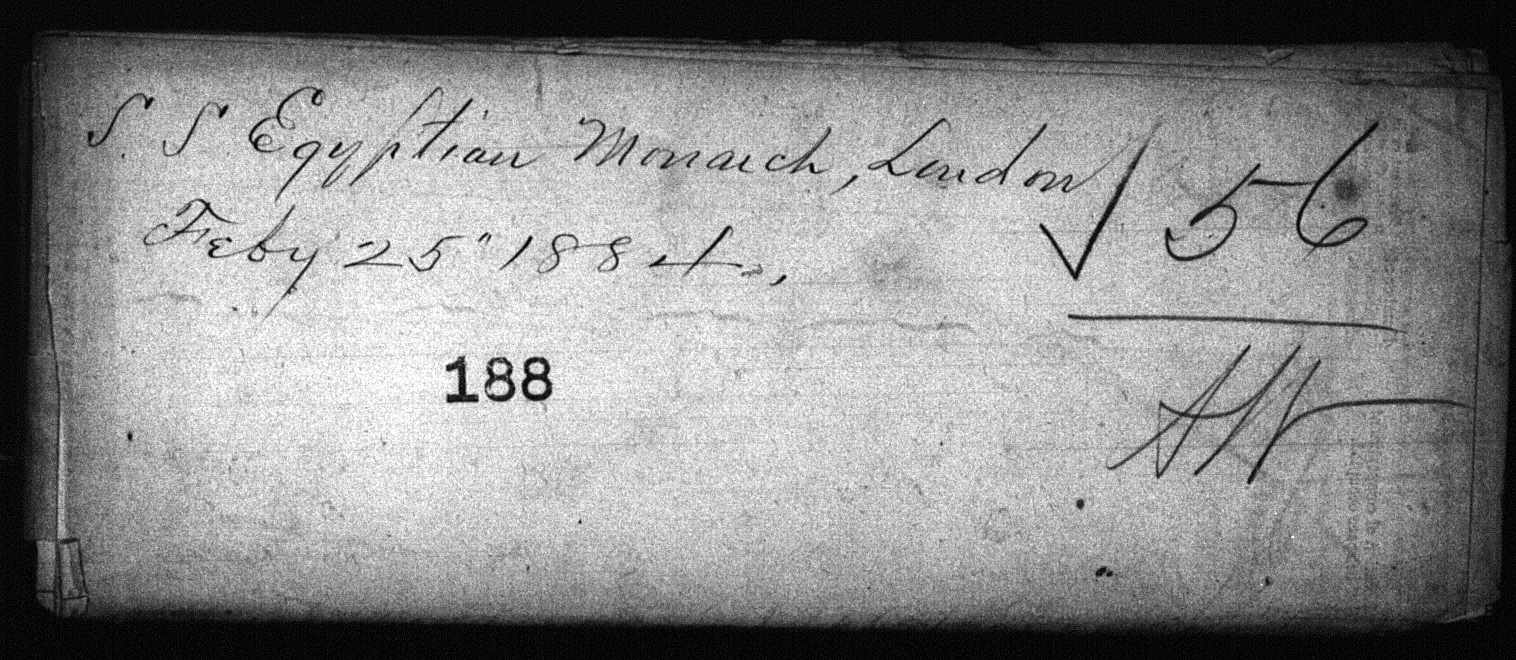 S. S Egyptian Monarch, London √ 56
Feby 25" 1884.,
188